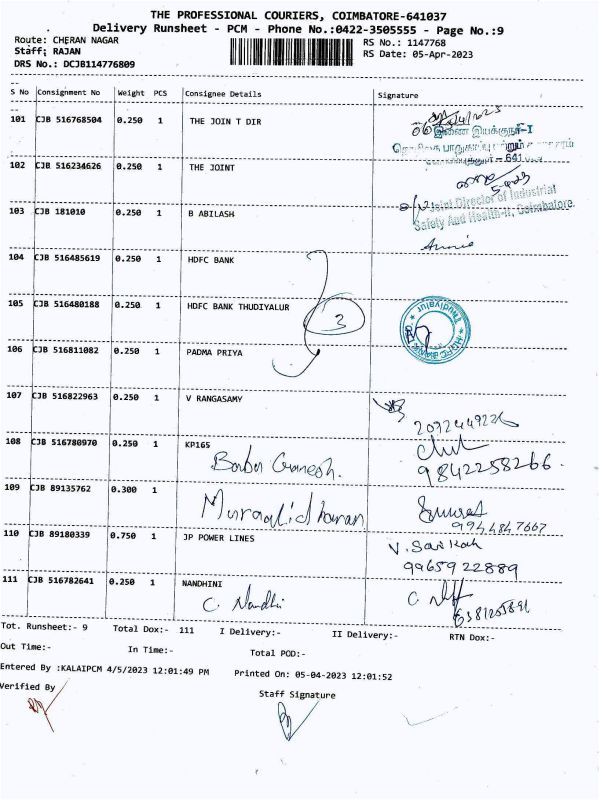 THE PROFESSIONAL COURIERS, COIMBATORE-641037
Delivery Runsheet - PCM - Phone No.:0422-3505555 - Page No.:9
Route: CHERAN NAGAR
RS No.: 1147768
Staff: RAJAN
RS Date: 05-Apr-2023
DRS No.: DCJB114776809
S No Consignment No Weight PCS Consignee Details Signature
101 CJB 516768504 0.250 1 THE JOIN T DIR
இணை இயக்குநர்-I
102 CJB 516234626 0.250 1 THE JOINT
641
Joint Director of Industrial
Safety And Health-II, Coimbatore
103 CJB 181010 0.250 1 B ABILASH
Annie
104 CJB 516485619 0.250 1 HDFC BANK
105 CJB 516480188 0.250 1 HDFC BANK THUDIYALUR
3
106 CJB 516811082 0.250 1 PADMA PRIYA
107 CJB 516822963 0.250 1 V RANGASAMY
108 CJB 516780970 0.250 1 KP165
Babu Ganesh.
9842258266.
109 CJB 89135762 0.300 1
Muraalidharan
9944847667
110 CJB 89180339 0.750 1 JP POWER LINES
9965922889
111 CJB 516782641 0.250 1 NANDHINI
C. Nandhi
Tot. Runsheet:- 9 Total Dox:- 111 I Delivery:- II Delivery:- RTN Dox:-
Out Time:- In Time:- Total POD:-
Entered By :KALAIPCM 4/5/2023 12:01:49 PM Printed On: 05-04-2023 12:01:52
Verified By Staff Signature